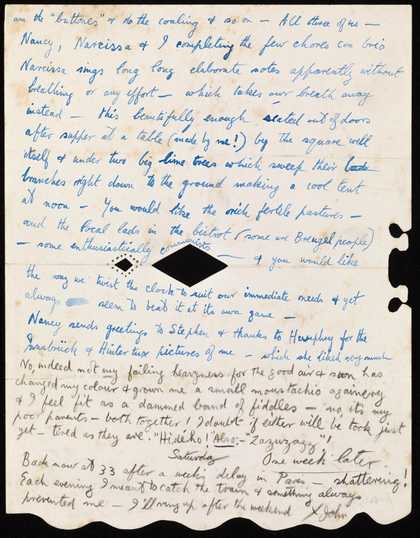 am do the "butteries" & do the cooking & so on – All three of us –
Nancy, Narcissa & I completing the few chores con brio
Narcissa sings long long elaborate notes apparently without
breathing or any effort – which takes our breath away
instead – this beautifully enough seated out of doors
after supper at a table (made by me!) by the square well
itself & under two big lime trees which sweep their
branches right down to the ground making a cool tent
at noon – You would like the rich fertile pastures –
and the local lads in the bistrot (some are Breugel people)
– some enthusiastically communistes – & you would like
the way we twist the clock to suit our immediate needs & yet
always seem to beat it at its own game –
Nancy sends greetings to Stephen & thanks to Humphry for the
Innsbrück & Hintertux pictures of me – which she liked very much
No, indeed not my failing heavyness for the good air & sun has
changed my colour & grown me a small moustachio againerry
& I feel fit as a damned band of fiddles – no, its my
poor parents – both together! I doubt if either will be took just
yet – tired as they are. "Hideho! Also:- Zazuzazz"!
Saturday One week later
Back now at 33 after a week's delay in Paris – shattering!
Each evening I meant to catch the train & something always
prevented me – I'll ring up after the weekend X John